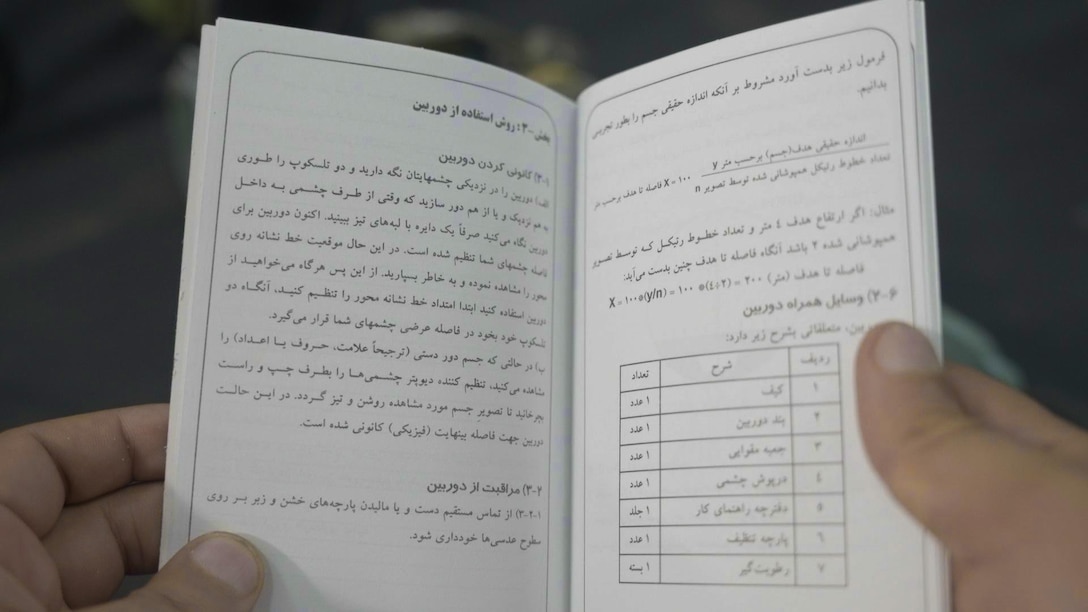 فرمول زیر بدست آورد مشروط بر آنکه اندازه حقیقی جسم را بطور تجربی
بدانیم.
اندازه حقیقی هدف(جسم) برحسب متر y
X = ۱۰۰ فاصله تا هدف برحسب متر
تعداد خطوط رتیکل همپوشانی شده توسط تصویر n
مثال: اگر ارتفاع هدف ٤ متر و تعداد خطوط رتیکل که توسط تصویر
همپوشانی شده ۲ باشد آنگاه فاصله تا هدف چنین بدست می‌آید:
فاصله تا هدف (متر) X = ۱۰۰*(y/n) = ۱۰۰ *(٤÷۲) = ۲۰۰
۲-۶) وسایل همراه دوربین
متعلقاتی بشرح زیر دارد:
ردیف شرح تعداد
۱ کیف ۱ عدد
۲ بند دوربین ۱ عدد
۳ جعبه مقوایی ۱ عدد
٤ درپوش چشمی ۱ عدد
۵ دفترچه راهنمای کار ۱ جلد
۶ پارچه تنظیف ۱ عدد
۷ رطوبت‌گیر ۱ بسته
بخش -۳ : روش استفاده از دوربین
۳-۱) کانونی کردن دوربین
الف) دوربین را در نزدیکی چشمهایتان نگه دارید و دو تلسکوپ را طوری
به هم نزدیک و یا از هم دور سازید که وقتی از طرف چشمی به داخل
دوربین نگاه می‌کنید صرفاً یک دایره با لبه‌های تیز ببینید. اکنون دوربین برای
فاصله چشمهای شما تنظیم شده است. در این حال موقعیت خط نشانه روی
محور را مشاهده نموده و به خاطر بسپارید. از این پس هرگاه می‌خواهید از
دوربین استفاده کنید ابتدا امتداد خط نشانه محور را تنظیم کنید، آنگاه دو
تلسکوپ خود بخود در فاصله عرضی چشمهای شما قرار می‌گیرد.
ب) در حالتی که جسم دور دستی (ترجیحاً علامت، حروف یا اعداد) را
مشاهده می‌کنید، تنظیم کننده دیوپتر چشمی‌ها را بطرف چپ و راست
بچرخانید تا تصویر جسم مورد مشاهده روشن و تیز گردد. در این حالت
دوربین جهت فاصله بینهایت (فیزیکی) کانونی شده است.
۳-۲) مراقبت از دوربین
۳-۲-۱) از تماس مستقیم دست و یا مالیدن پارچه‌های خشن و زبر بر روی
سطوح عدسی‌ها خودداری شود.